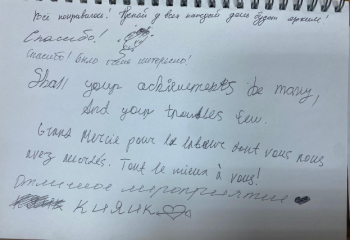 Всё понравилось! Пускай у всех каждый день будет ярким!
Спасибо!
Спасибо! Было очень интересно!
Shall your achievements be many,
And your troubles few.
Grand Mercie pour la labeur dont vous nous
avez montrés. Tout le mieux à vous!
Отличное мероприятие
КИЯИК